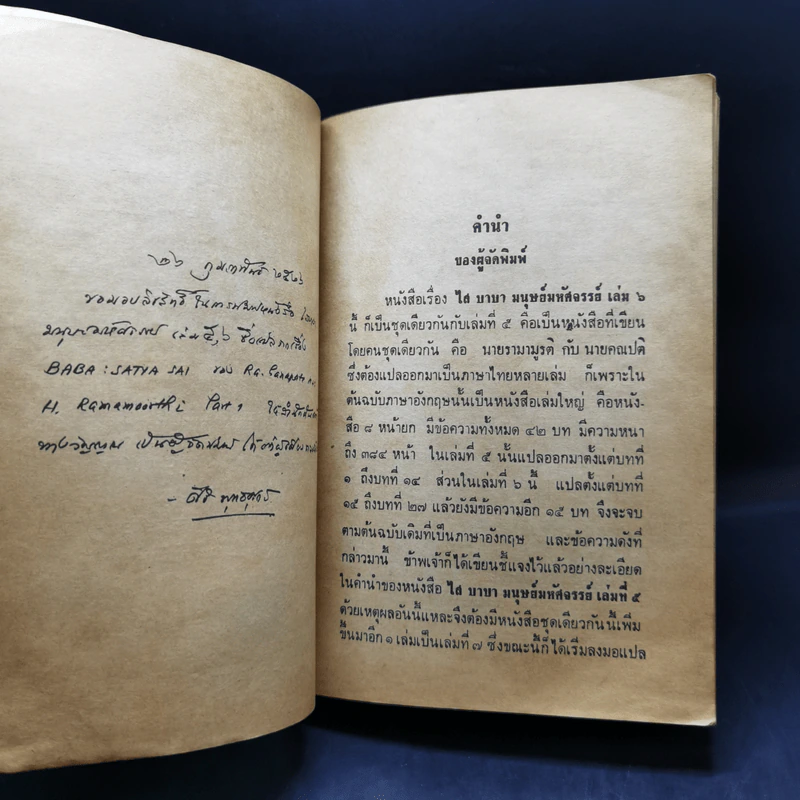 ๒๖ กุมภาพันธ์ ๒๕๒๖
ขอมอบลิขสิทธิ์ ในการพิมพ์หนังสือ
มนุษย์มหัศจรรย์ เล่ม ๕,๖ ซึ่งแปลจากเรื่อง
BABA : SATYA SAI ของ Ra. Ganapati
H. Ramamoorthi Part 1 ให้สำนักค้นคว้า
ทางวิญญาณ เป็นผู้จัดพิมพ์ ได้แต่ผู้เดียว
พุทธศุกร์
คำนำ
ของผู้จัดพิมพ์
หนังสือเรื่อง ไส บาบา มนุษย์มหัศจรรย์ เล่ม ๖
นี้ ก็เป็นชุดเดียวกันกับเล่มที่ ๕ คือเป็นหนังสือที่เขียน
โดยคนชุดเดียวกัน คือ นายรามามูรติ กับ นายคณปติ
ซึ่งต้องแปลออกมาเป็นภาษาไทยหลายเล่ม ก็เพราะใน
ต้นฉบับภาษาอังกฤษนั้นเป็นหนังสือเล่มใหญ่ คือหนัง-
สือ ๘ หน้ายก มีข้อความทั้งหมด ๔๒ บท มีความหนา
ถึง ๓๘๔ หน้า ในเล่มที่ ๕ นั้นแปลออกมาตั้งแต่บทที่
๑ ถึงบทที่ ๑๔ ส่วนในเล่มที่ ๖ นี้ แปลตั้งแต่บทที่
๑๕ ถึงบทที่ ๒๗ แล้วยังมีข้อความอีก ๑๕ บท จึงจะจบ
ตามต้นฉบับเดิมที่เป็นภาษาอังกฤษ และข้อความดังที่
กล่าวมานี้ ข้าพเจ้าก็ได้เขียนชี้แจงไว้แล้วอย่างละเอียด
ในคำนำของหนังสือ ไส บาบา มนุษย์มหัศจรรย์ เล่มที่ ๕
ด้วยเหตุผลอันนี้แหละจึงต้องมีหนังสือชุดเดียวกันนี้เพิ่ม
ขึ้นมาอีก ๑ เล่มเป็นเล่มที่ ๗ ซึ่งขณะนี้ก็ได้เริ่มลงมอแปล